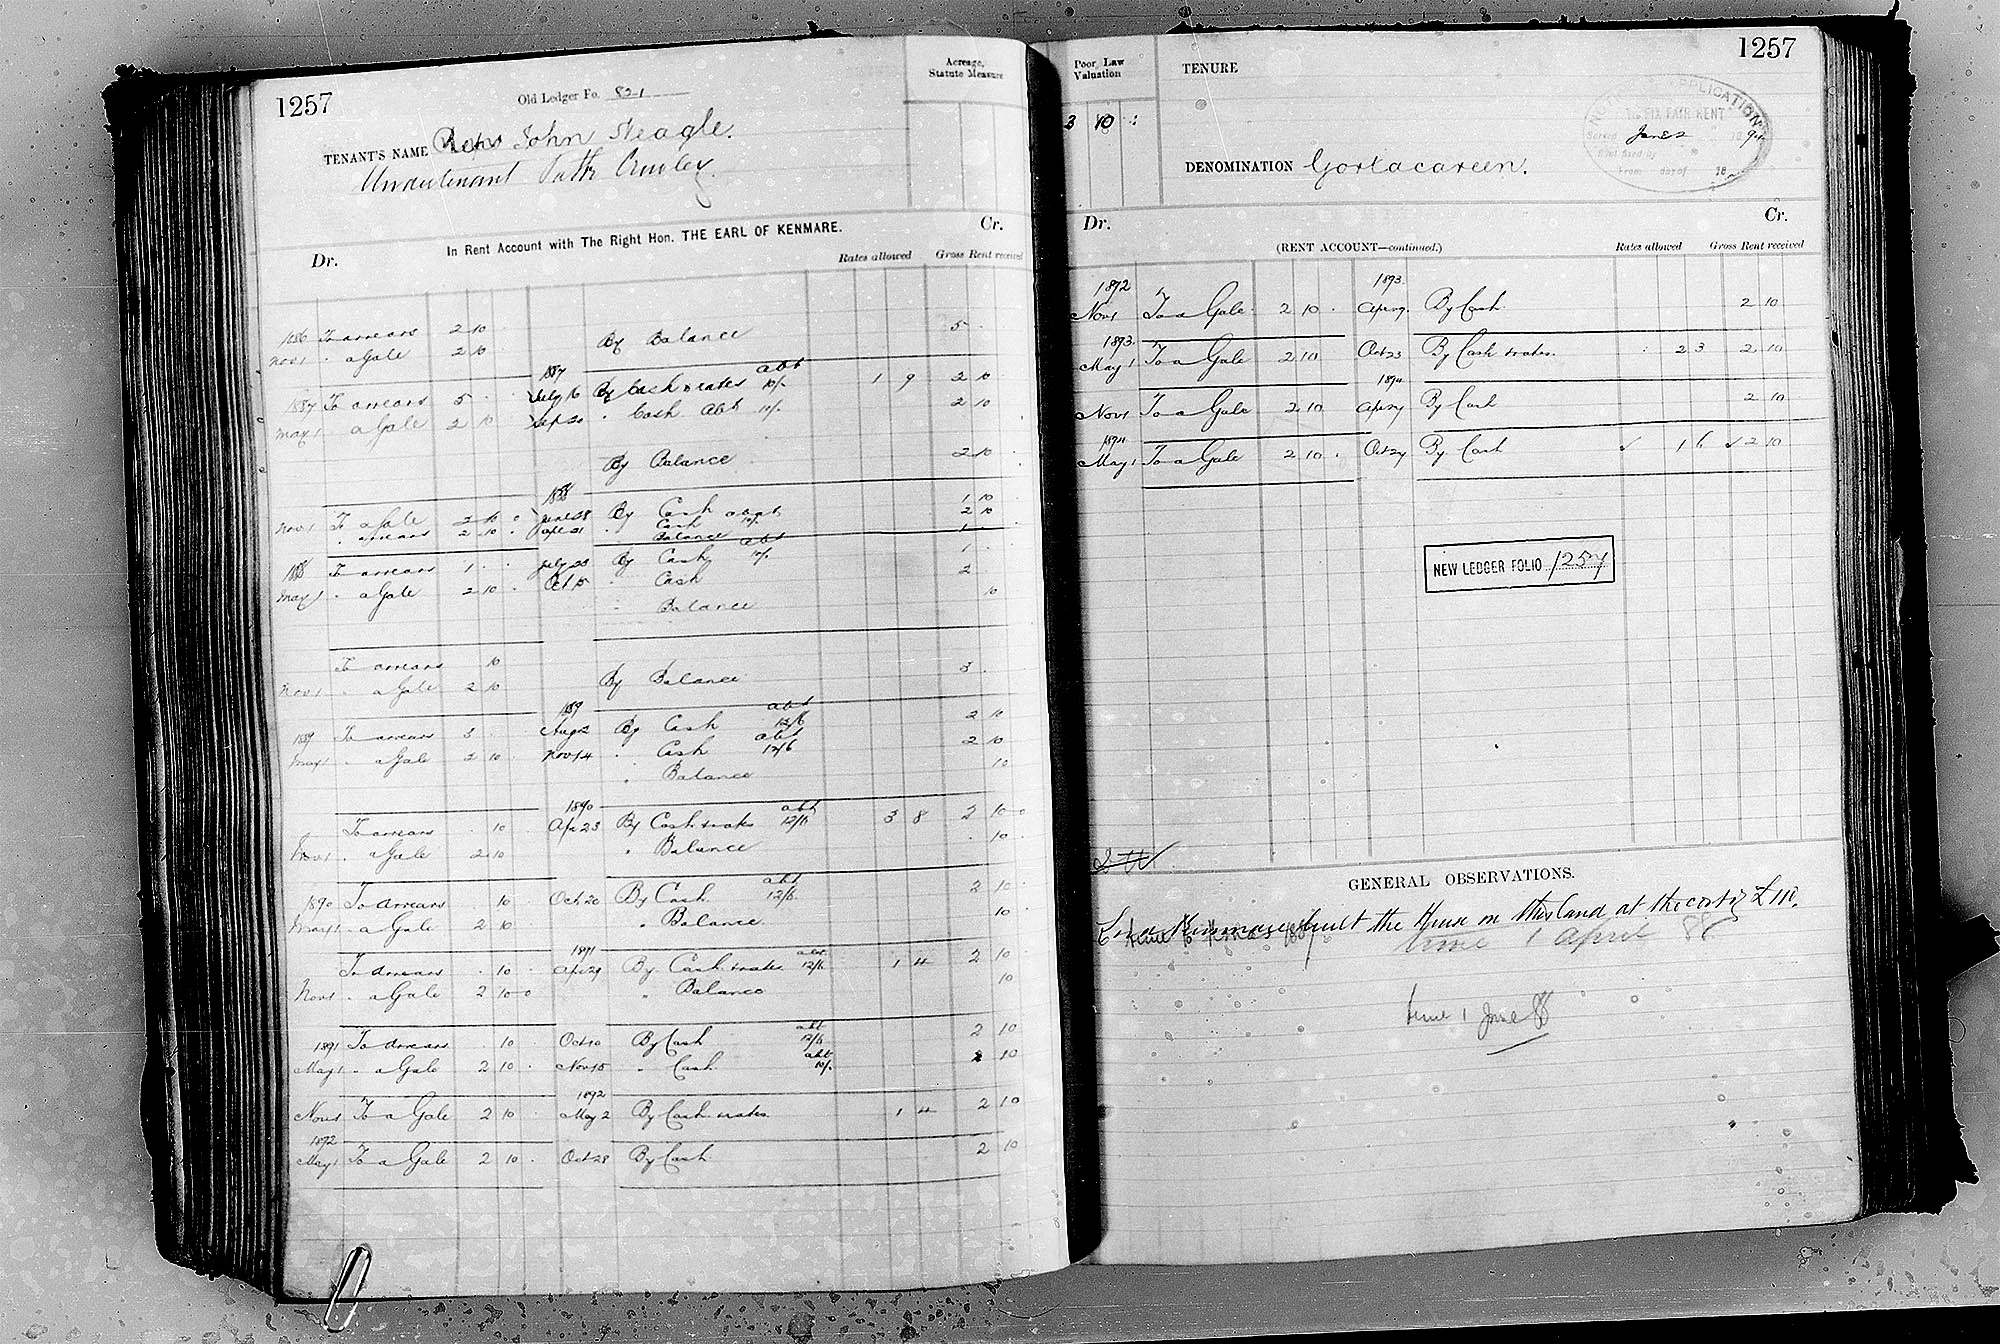 1257
Old Ledger Fo. 821
Acreage, Statute Measure
TENANT'S NAME Reps John Neagle.
Undertenant Patk
In Rent Account with The Right Hon. THE EARL OF KENMARE.
Dr. Cr.
Rates allowed Gross Rent received
1886 To arrears 2 10 By Balance 5
Nov 1 " a Gale 2 10
1887 abt
1887 To arrears 5 July 16 By Cash & rates 10/- 1 9 2 10
May 1 a Gale 2 10 Sep 20 " Cash Abt 10/- 2 10
By Balance 2 10
1888
Nov 1 To a Gale 2 10 0 June 28 By Cash abat 1 10
" arrears 2 10 " Cash 10/- 2 10
" Balance 1
1888 To arrears 1 July 23 By Cash abt 10/- 1
May 1 " a Gale 2 10 Oct 15 " Cash 2
" Balance 10
To arrears 10
Nov 1 " a Gale 2 10 By Balance 3
1889
1889 To arrears 3 Aug 2 By Cash abt 12/6 2 10
May 1 " a Gale 2 10 Nov 14 " Cash abt 12/6 2 10
" Balance 10
1890
To arrears 10 Apr 23 By Cash & rates abt 12/6 3 8 2 10 0
Nov 1 " a Gale 2 10 " Balance 10
1890 To arrears 10 Oct 20 By Cash abt 12/6 2 10
May 1 " a Gale 2 10 " Balance 10
1891
To arrears 10 Apr 29 By Cash & rates abt 12/6 1 4 2 10
Nov 1 " a Gale 2 10 0 " Balance 10
1891 To arrears 10 Oct 10 By Cash abt 12/6 2 10
May 1 " a Gale 2 10 Nov 15 " Cash abt 10/- 10
1892
Nov 1 To a Gale 2 10 May 2 By Cash & rates 1 4 2 10
1892
May 1 To a Gale 2 10 Oct 28 By Cash 2 10
1257
Poor Law Valuation
3 10
TENURE
DENOMINATION Gortacareen.
NOTICE OF APPLICATION
TO FIX FAIR RENT
Served June 2 1894
From day of 18
Dr. Cr.
(RENT ACCOUNT—continued.)
Rates allowed Gross Rent received
1892 1893
Nov 1 To a Gale 2 10 By Cash 2 10
1893
May 1 To a Gale 2 10 Oct 23 By Cash & rates 2 3 2 10
1894
Nov 1 To a Gale 2 10 By Cash 2 10
1894
May 1 To a Gale 2 10 Oct 24 By Cash 1 6 2 10
NEW LEDGER FOLIO 1257
GENERAL OBSERVATIONS.
Lord Kenmare built the House on this land at the cost of £
time 1 April 88
time 1 June 88